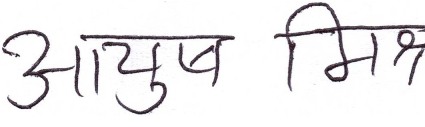 आयुष मिश्र